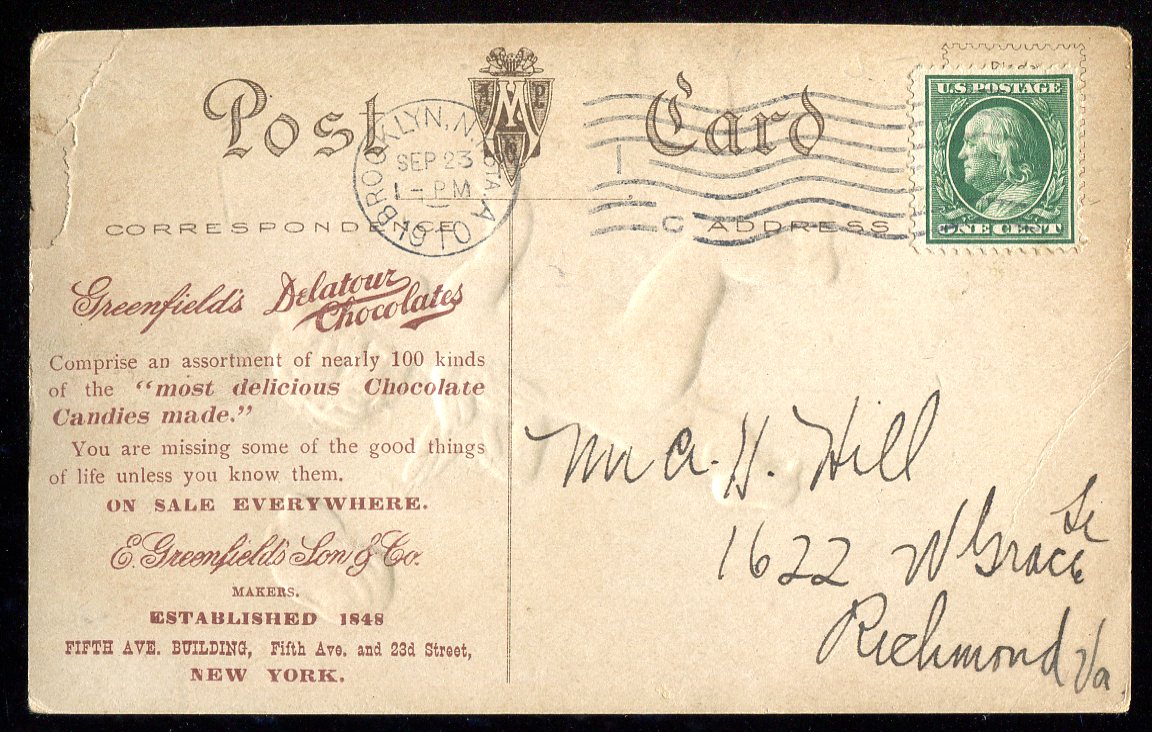 Post Card
BROOKLYN, N.Y. STA. A
SEP 23
1 - PM
1910
C
U.S. POSTAGE
ONE CENT
CORRESPONDENCE
ADDRESS
Greenfield's Delatour
Chocolates
Comprise an assortment of nearly 100 kinds
of the "most delicious Chocolate
Candies made."
You are missing some of the good things
of life unless you know them.
ON SALE EVERYWHERE.
E. Greenfield's Son & Co.
MAKERS.
ESTABLISHED 1848
FIFTH AVE. BUILDING, Fifth Ave. and 23d Street,
NEW YORK.
Mr A. H. Hill
1622 W Grace St
Richmond Va